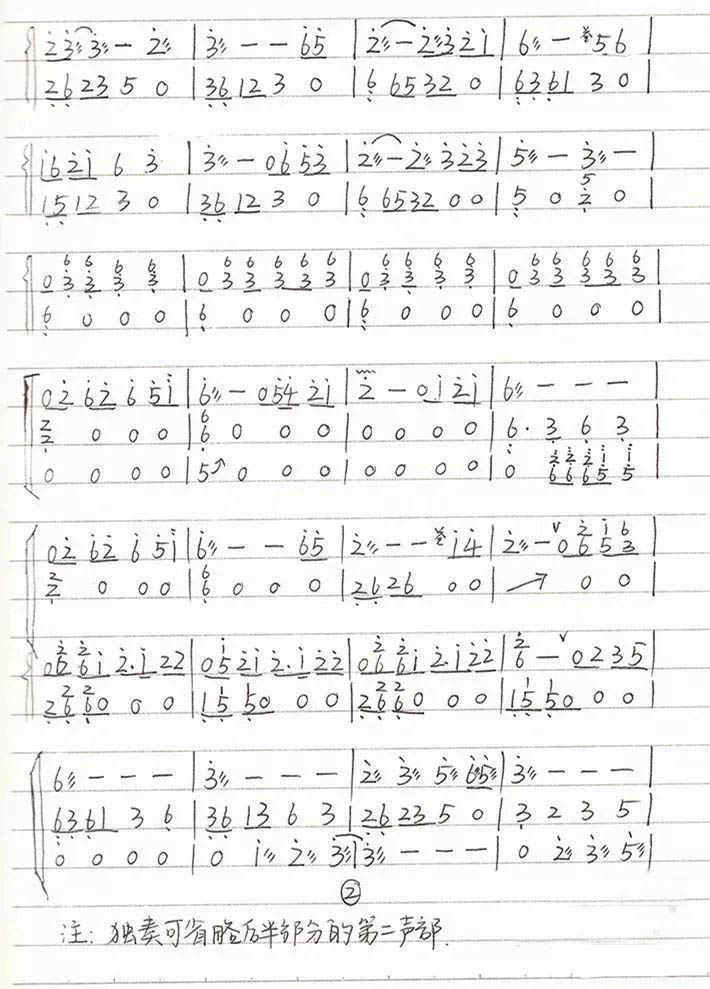 2 3 3 — 2 | 3 — — 6 5 | 2 — 2 3 2 1 | 6 — 5 6 |
2 6 2 3 5 0 | 3 6 1 2 3 0 | 6 6 5 3 2 0 | 6 3 6 1 3 0 |
1 6 2 1 6 3 | 3 — 0 6 5 3 | 2 — 2 3 2 3 | 5 — 3 — |
1 5 1 2 3 0 | 3 6 1 2 3 0 | 6 6 5 3 2 0 0 | 5 0 2 0 |
6 6 6 6 6 6 6 6 6 6 6 6 6 6 6 6 6 6
0 3 3 3 3 | 0 3 3 3 3 3 | 0 3 3 3 3 | 0 3 3 3 3 3 |
6 0 0 0 | 6 0 0 0 | 6 0 0 0 | 6 0 0 0 |
0 2 6 2 6 5 1 | 6 — 0 5 4 2 1 | 2 — 0 1 2 1 | 6 — — — |
2 0 0 0 | 6 0 0 0 | 0 0 0 0 | 6 · 3 6 3 |
0 0 0 0 | 5 0 0 0 | 0 0 0 0 | 0 6 6 6 5 5 |
0 2 6 2 6 5 1 | 6 — — 6 5 | 2 — — 1 4 | 2 — V 0 6 5 3 |
2 0 0 0 | 6 0 0 0 | 2 6 2 6 0 0 | 0 0 |
0 6 6 1 2 · 1 2 2 | 0 5 2 1 2 · 1 2 2 | 0 6 6 1 2 · 1 2 2 | 6 — V 0 2 3 5 |
2 6 6 0 0 0 | 1 5 5 0 0 0 | 2 6 6 0 0 0 | 1 5 5 0 0 0 |
6 — — — | 3 — — — | 2 3 5 6 5 | 3 — — — |
6 3 6 1 3 6 | 3 6 1 3 6 3 | 2 6 2 3 5 0 | 3 2 3 5 |
0 0 0 0 | 0 1 2 3 | 3 — — — | 0 2 3 5 |
②
注: 独奏可省略后半部分的第二声部.